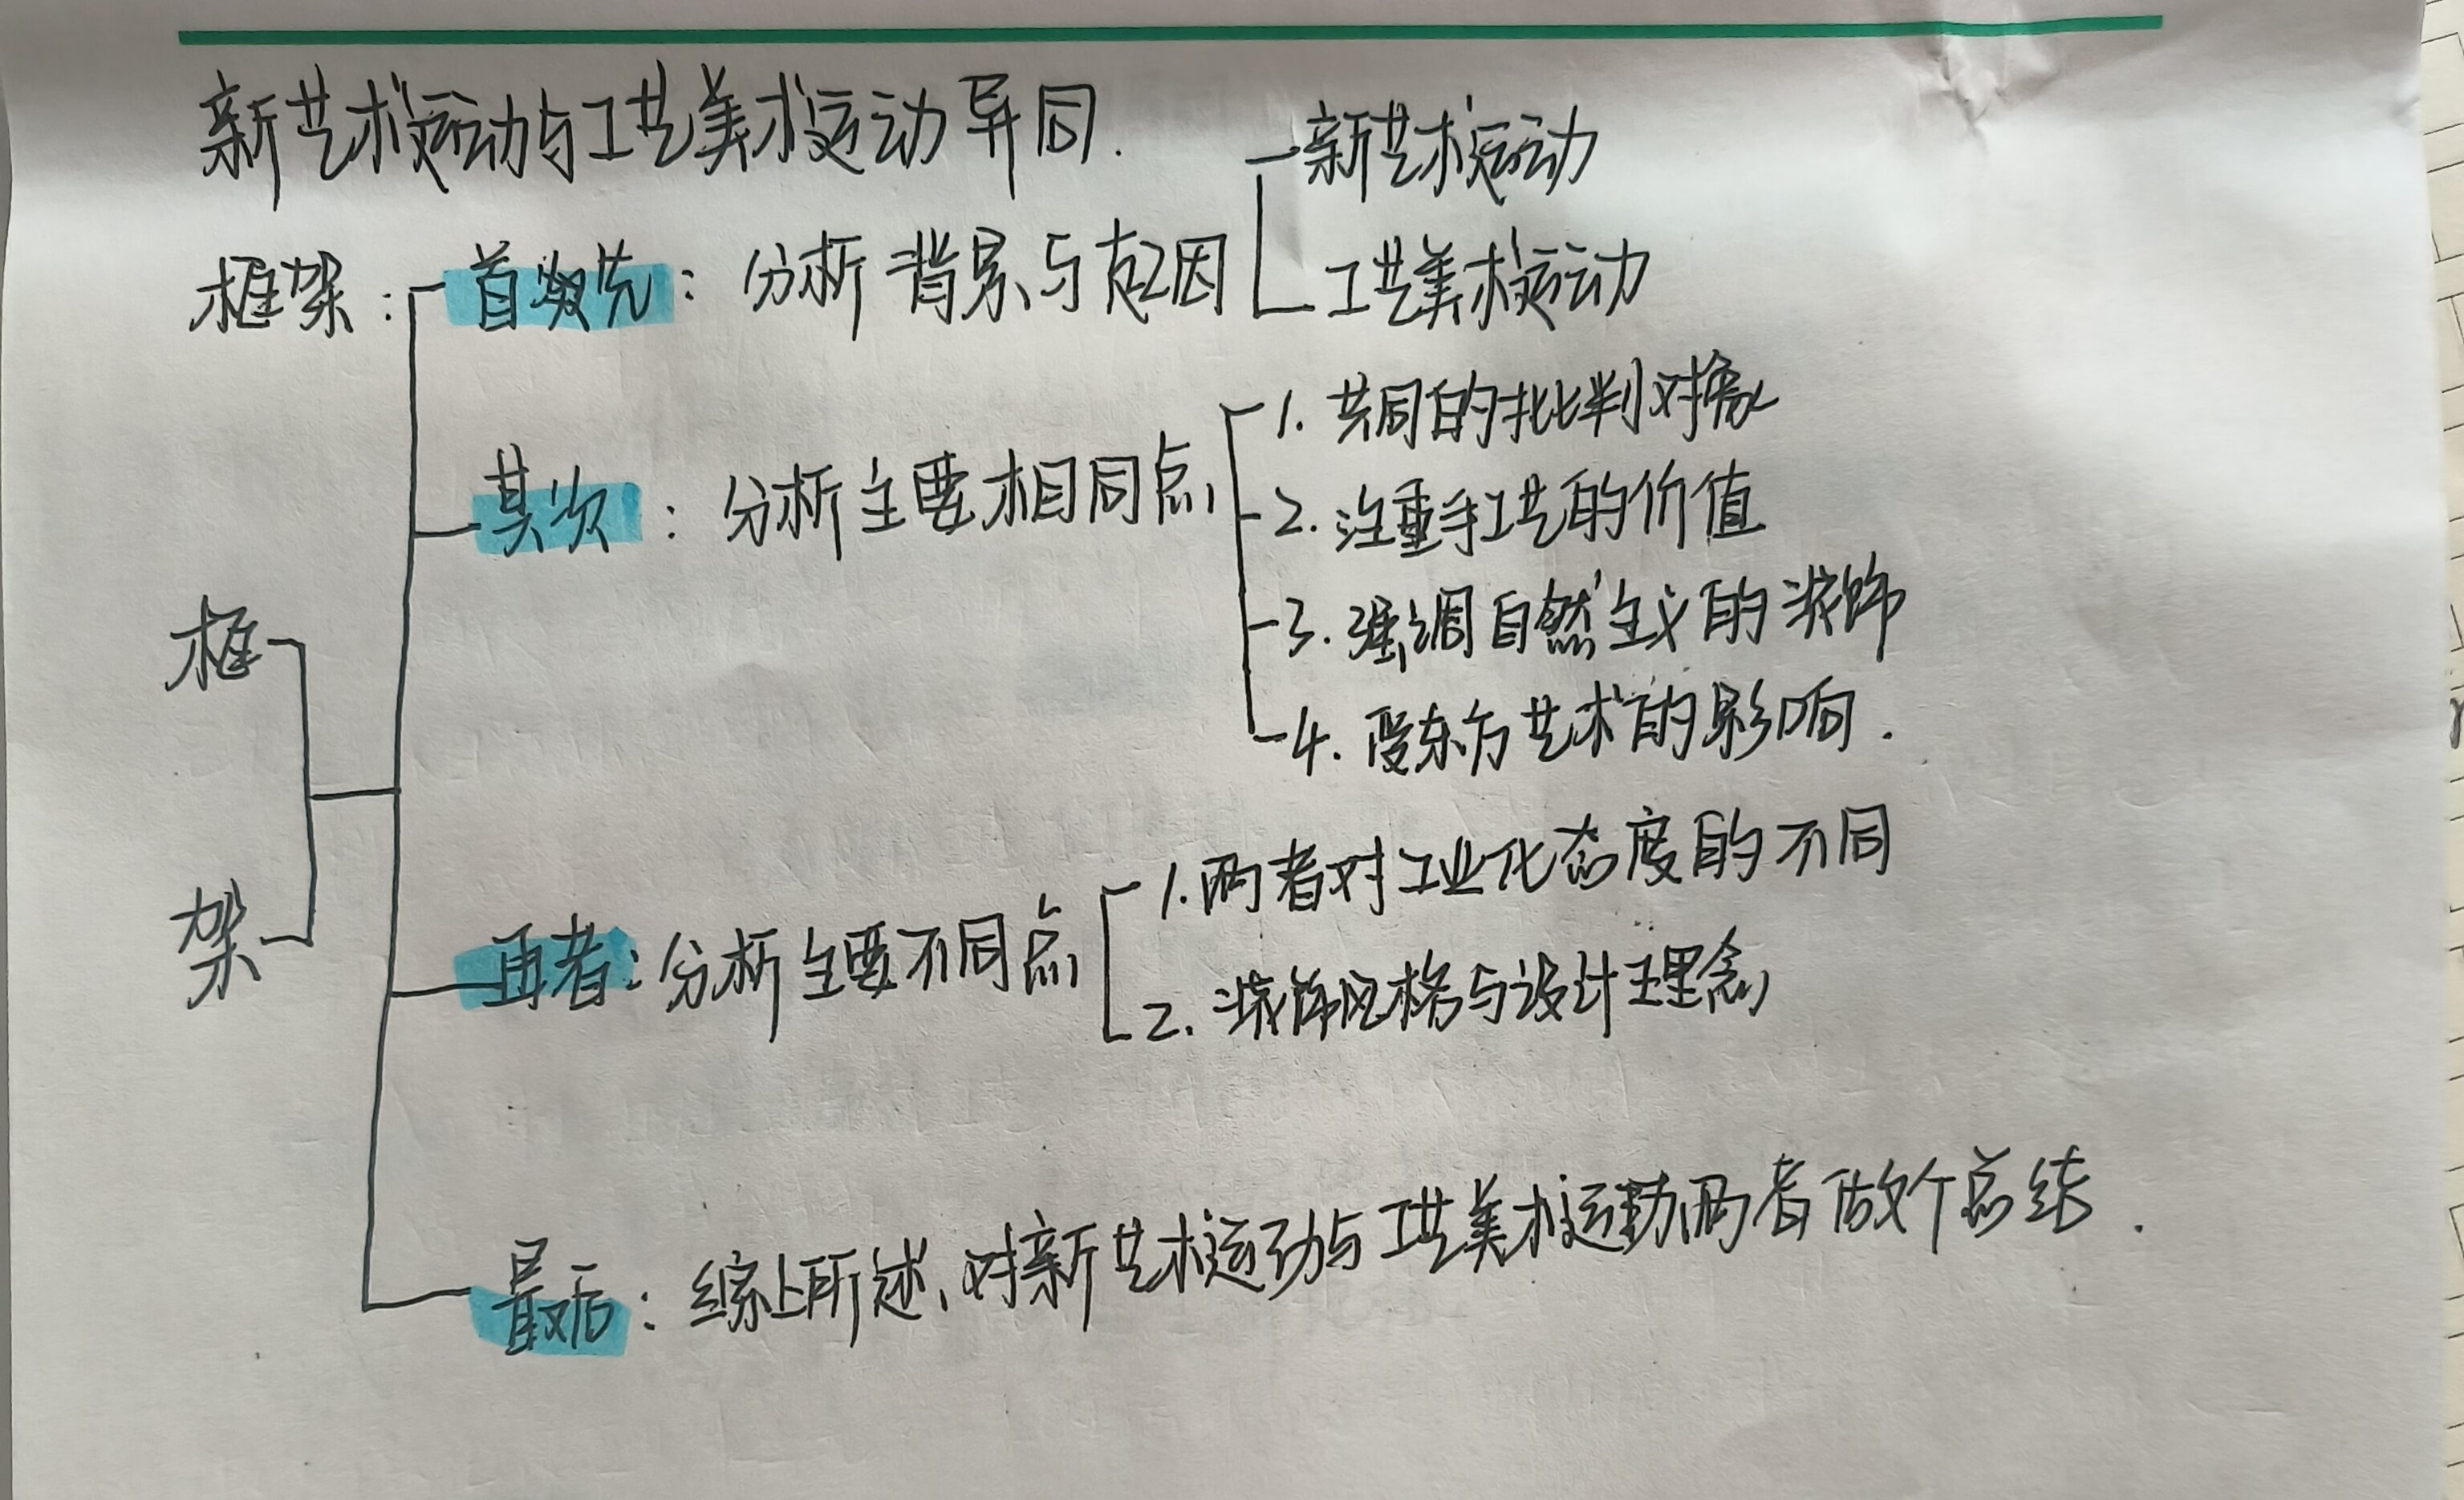 新艺术运动与工艺美术运动异同.
新艺术运动
框架: 首先: 分析背景与起因
工艺美术运动
1. 共同的批判对象
其次: 分析主要相同点
2. 注重手工艺的价值
3. 强调自然主义的装饰
4. 受东方艺术的影响.
框架
1. 两者对工业化态度的不同
再者: 分析主要不同点
2. 装饰风格与设计理念
最后: 综上所述、对新艺术运动与工艺美术运动两者做个总结.